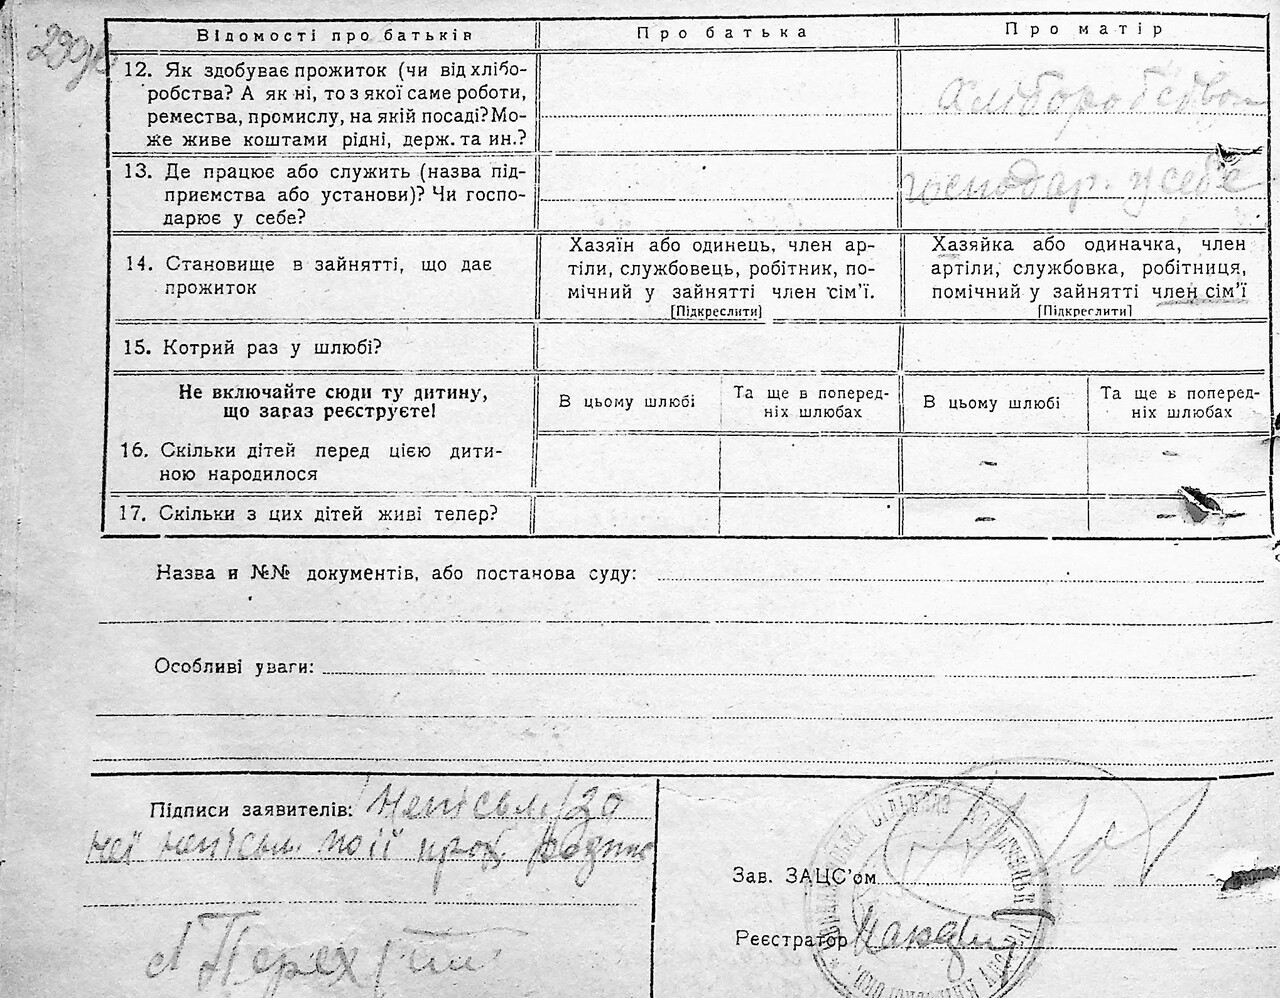 290
Відомості про батьків
Про батька
Про матір
12. Як здобуває прожиток (чи від хлібо-
робства? А як ні, то з якої саме роботи,
ремества, промислу, на якій посаді? Мо-
же живе коштами рідні, держ. та ин.?
хліборобством
13. Де працює або служить (назва під-
приємства або установи)? Чи госпо-
дарює у себе?
господар. у себе
14. Становище в зайнятті, що дає
прожиток
Хазяїн або одинець, член ар-
тіли, службовець, робітник, по-
мічний у зайнятті член сім'ї.
[Підкреслити]
Хазяйка або одиначка, член
артіли, службовка, робітниця,
помічний у зайнятті член сім'ї
[Підкреслити]
15. Котрий раз у шлюбі?
Не включайте сюди ту дитину,
що зараз реєструєте!
В цьому шлюбі
Та ще в поперед-
ніх шлюбах
В цьому шлюбі
Та ще в поперед-
ніх шлюбах
16. Скільки дітей перед цією дити-
ною народилося
- -
17. Скільки з цих дітей живі тепер?
- -
Назва и №№ документів, або постанова суду:
Особливі уваги:
Підписи заявителів: неписьм.
неї неписьм. по її прох.
Зав. ЗАЦС'ом
Реєстратор